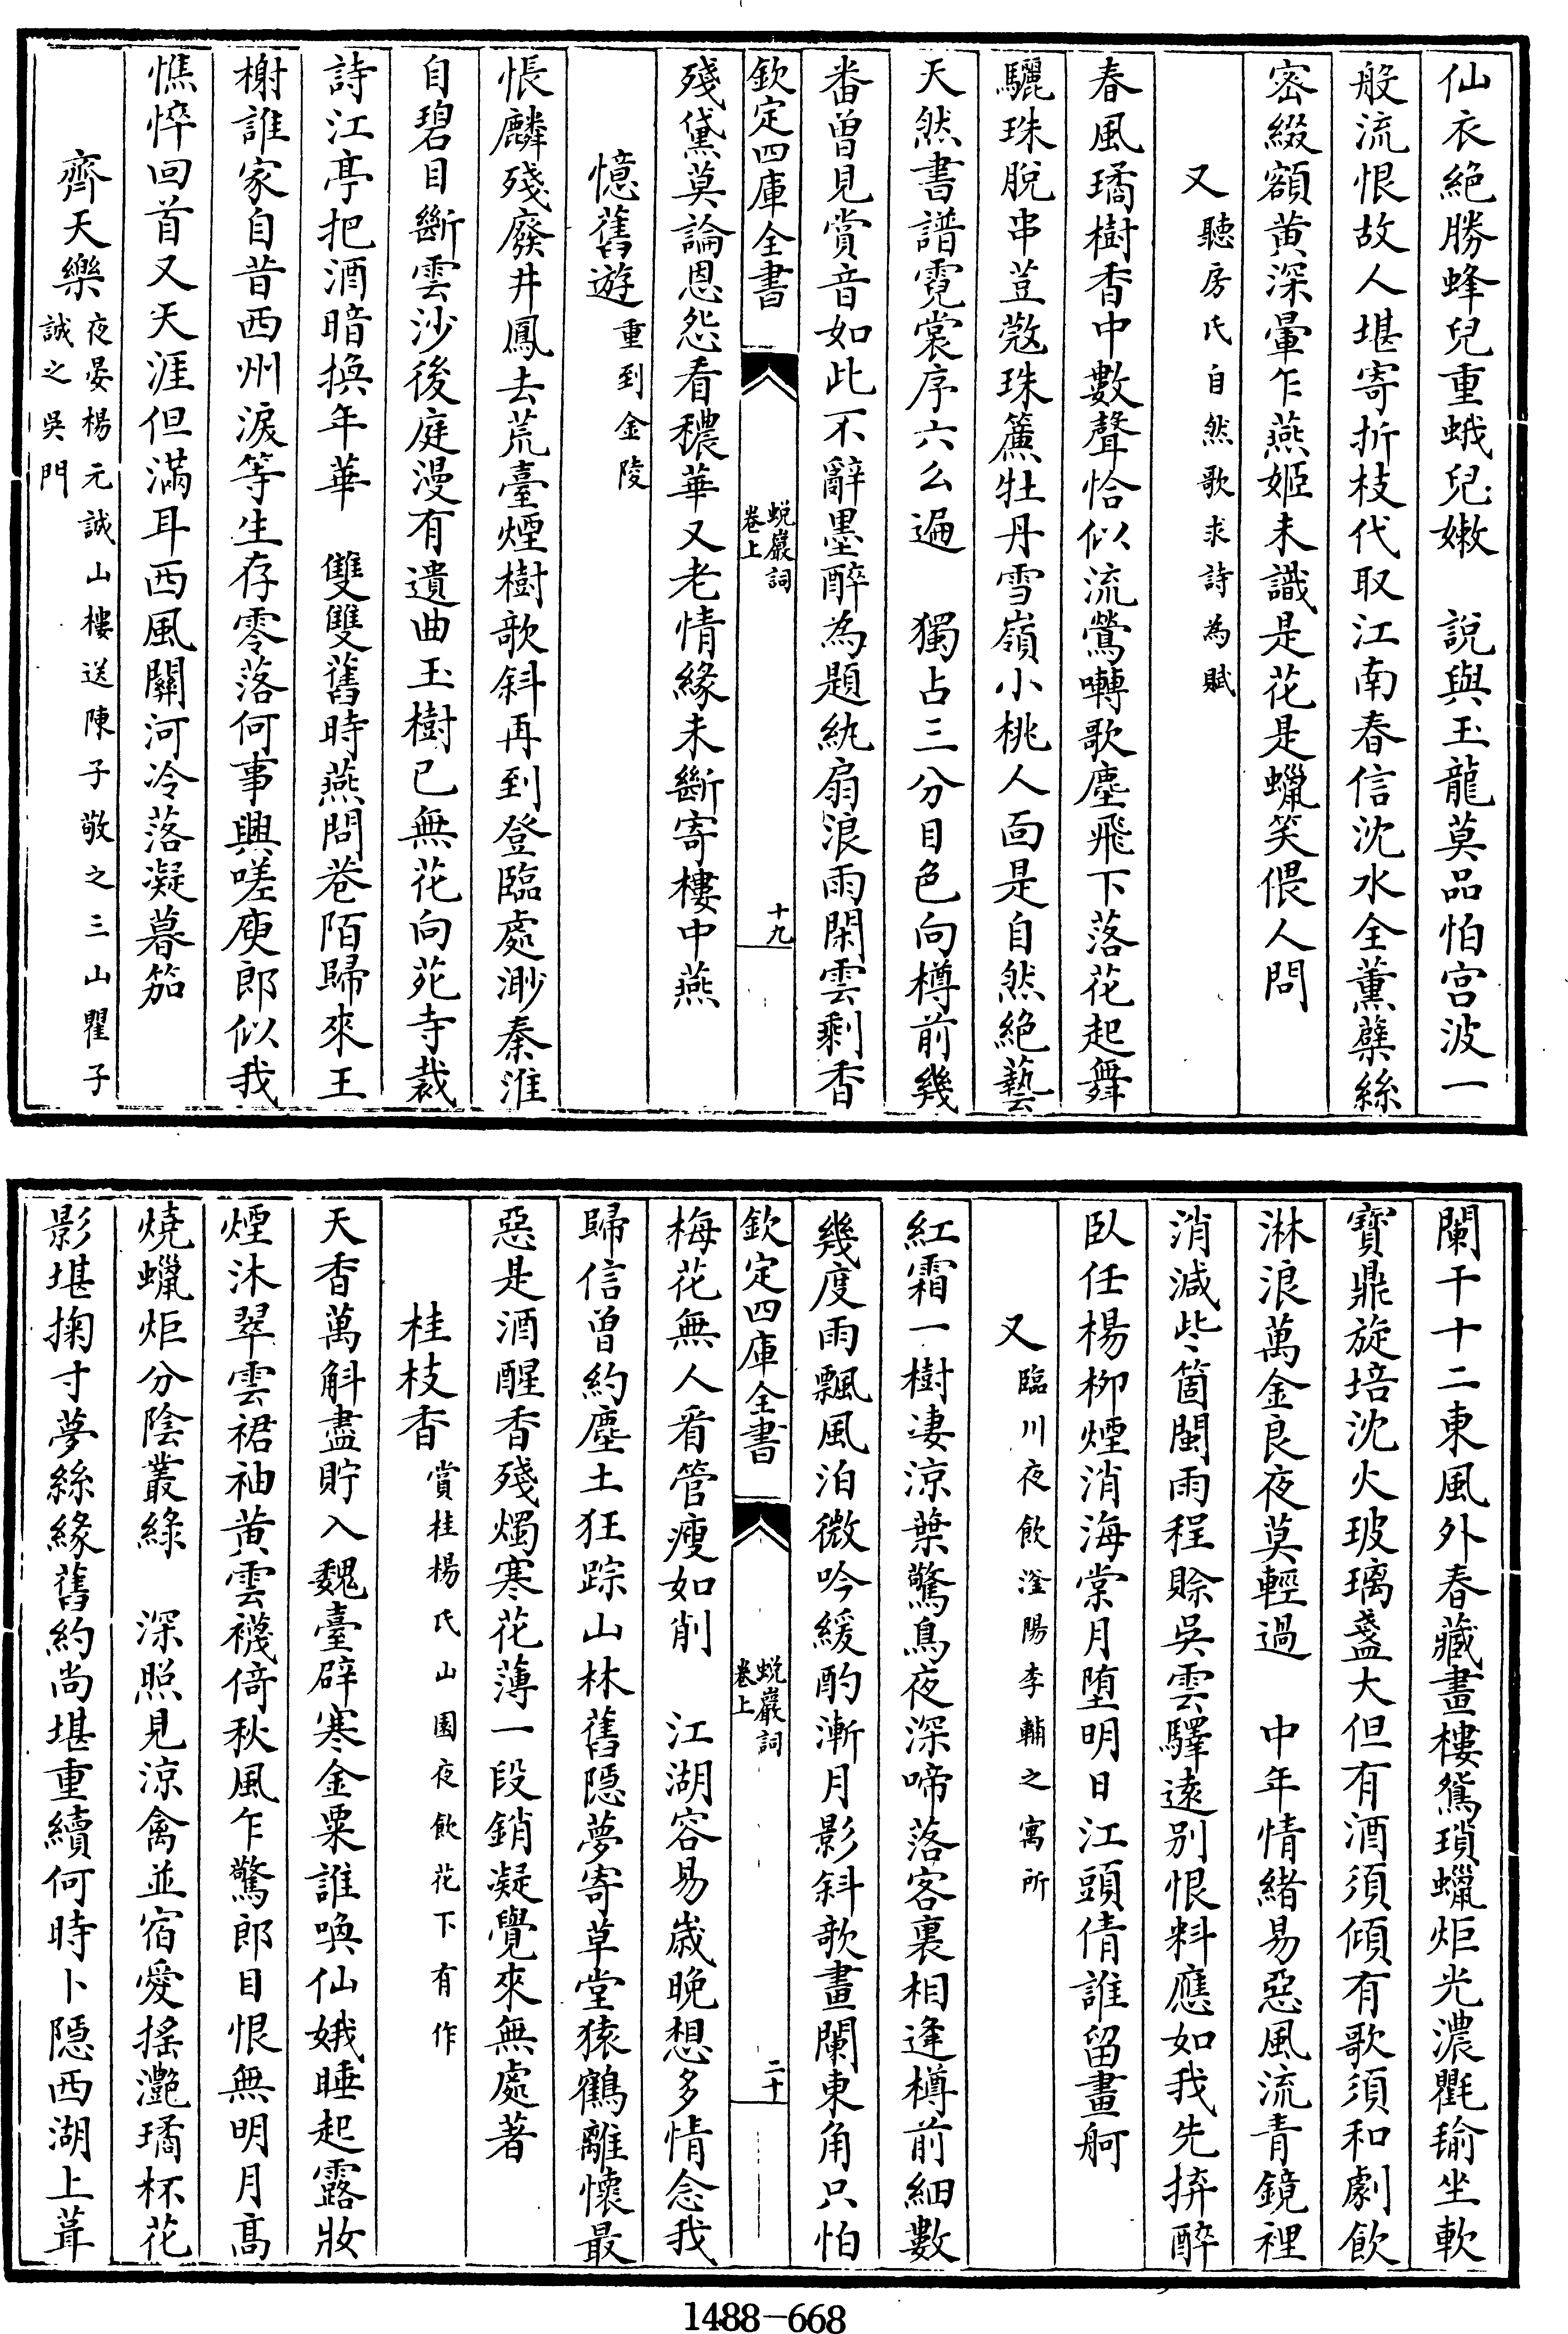 仙衣絶勝蜂兒重蛾兒嫩　說與玉龍莫品怕宮波一
般流恨故人堪寄折枝代取江南春信沈水全薰蘖絲
密綴額黄深暈乍燕姬未識是花是蠟笑偎人問
又聽房氏自然歌求詩為賦
春風璚樹香中數聲恰似流鶯囀歌塵飛下落花起舞
驪珠脫串荳蔻珠簾牡丹雪嶺小桃人面是自然絶藝
天然書譜霓裳序六么遍　獨占三分目色向樽前幾
番曽見賞音如此不辭墨醉為題紈扇浪雨閑雲剩香
欽定四庫全書　蛻巖詞卷上　十九
殘黛莫論恩怨看穠華又老情緣未斷寄樓中燕
憶舊遊重到金陵
悵麟殘廢井鳳去荒臺煙樹歌斜再到登臨處渺秦淮
自碧目斷雲沙後庭漫有遺曲玉樹已無花向苑寺裁
詩江亭把酒暗換年華　雙雙舊時燕問巷陌歸來王
榭誰家自昔西州淚等生存零落何事興嗟庾郎似我
憔悴回首又天涯但滿耳西風關河冷落凝暮笳
齊天樂夜晏楊元誠山樓送陳子敬之三山瞿子
誠之吳門
闌干十二東風外春藏畫樓鴛瑣蠟炬光濃氍毹坐軟
寶鼎旋培沈火玻璃盞大但有酒須傾有歌須和劇飲
淋浪萬金良夜莫輕過　中年情緒易惡風流青鏡裡
消減些箇閩雨程賒吳雲驛遠别恨料應如我先拚醉
臥任楊柳煙消海棠月墮明日江頭倩誰留畫舸
又臨川夜飲滏陽李輔之寓所
紅霜一樹凄涼葉驚烏夜深啼落客裏相逢樽前細數
幾度雨飄風泊微吟緩酌漸月影斜欹畫闌東角只怕
欽定四庫全書　蛻巖詞卷上　二十
梅花無人看管瘦如削　江湖容易歲晚想多情念我
歸信曽約塵土狂踪山林舊隱夢寄草堂猿鶴離懷最
惡是酒醒香殘燭寒花薄一段銷凝覺來無處著
桂枝香賞桂楊氏山園夜飲花下有作
天香萬斛盡貯入魏臺辟寒金粟誰喚仙娥睡起露妝
煙沐翠雲裙袖黄雲襪倚秋風乍驚郎目恨無明月高
燒蠟炬分陰叢緑　深照見涼禽並宿愛摇灔璚杯花
影堪掬寸夢絲緣舊約尚堪重續何時卜隱西湖上葺
1488—668